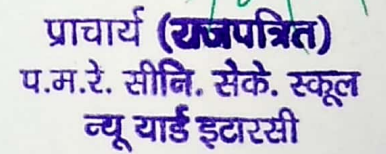 प्राचार्य (राजपत्रित)
प.म.रे. सीनि. सेके. स्कूल
न्यू यार्ड इटारसी